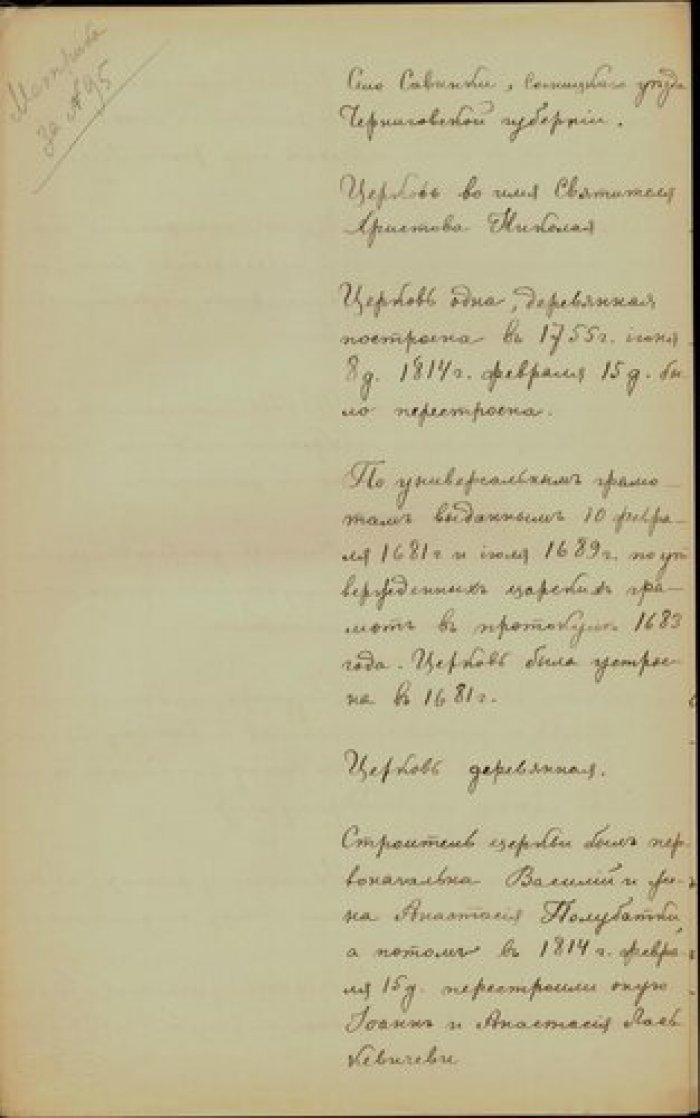 Метрика
за № 95
Село Савинки, Сосницкаго уѣзда
Черниговской губерніи.
Церковь во имя Святителя
Христова Николая
Церковь одна, деревянная
построена въ 1755 г. іюня
8 д. 1814 г. февраля 15 д. бы
ло перестроена.
По универсальнымъ грамо
тамъ выданнымъ 10 февра-
ля 1681 г и іюля 1689 г. по ут
вержденныхъ царскихъ гра-
мотъ въ 1683
года. Церковь была устрое-
на въ 1681 г.
Церковь деревянная.
Строитель церкви былъ пер
воначальна Василій и же-
на Анастасія Полубатки
а потомъ въ 1814 г. февра-
ля 15 д. перестроили оную
Іоаннъ и Анастасія Лась
кевичеви